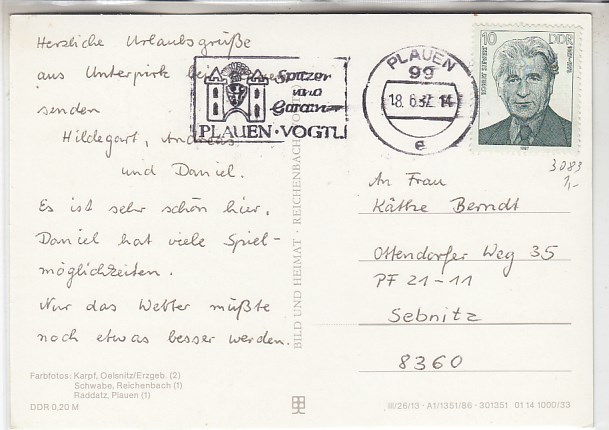 Herzliche Urlaubsgrüße
aus Unterpirk bei
senden
Hildegart, Andreas
und Daniel.
Es ist sehr schön hier.
Daniel hat viele Spiel-
möglichkeiten.
Nur das Wetter müßte
noch etwas besser werden.
Farbfotos: Karpf, Oelsnitz/Erzgeb. (2)
Schwabe, Reichenbach (1)
Raddatz, Plauen (1)
DDR 0,20 M
Spitzen
und
Gardinen
PLAUEN · VOGTL
PLAUEN
99
18.6.87 14
e
10 DDR
1987
BILD UND HEIMAT · REICHENBACH
3083
1,-
An Frau
Käthe Berndt
Ottendorfer Weg 35
PF 21-11
Sebnitz
8360
III/26/13 · A1/1351/86 · 301351 01 14 1000/33